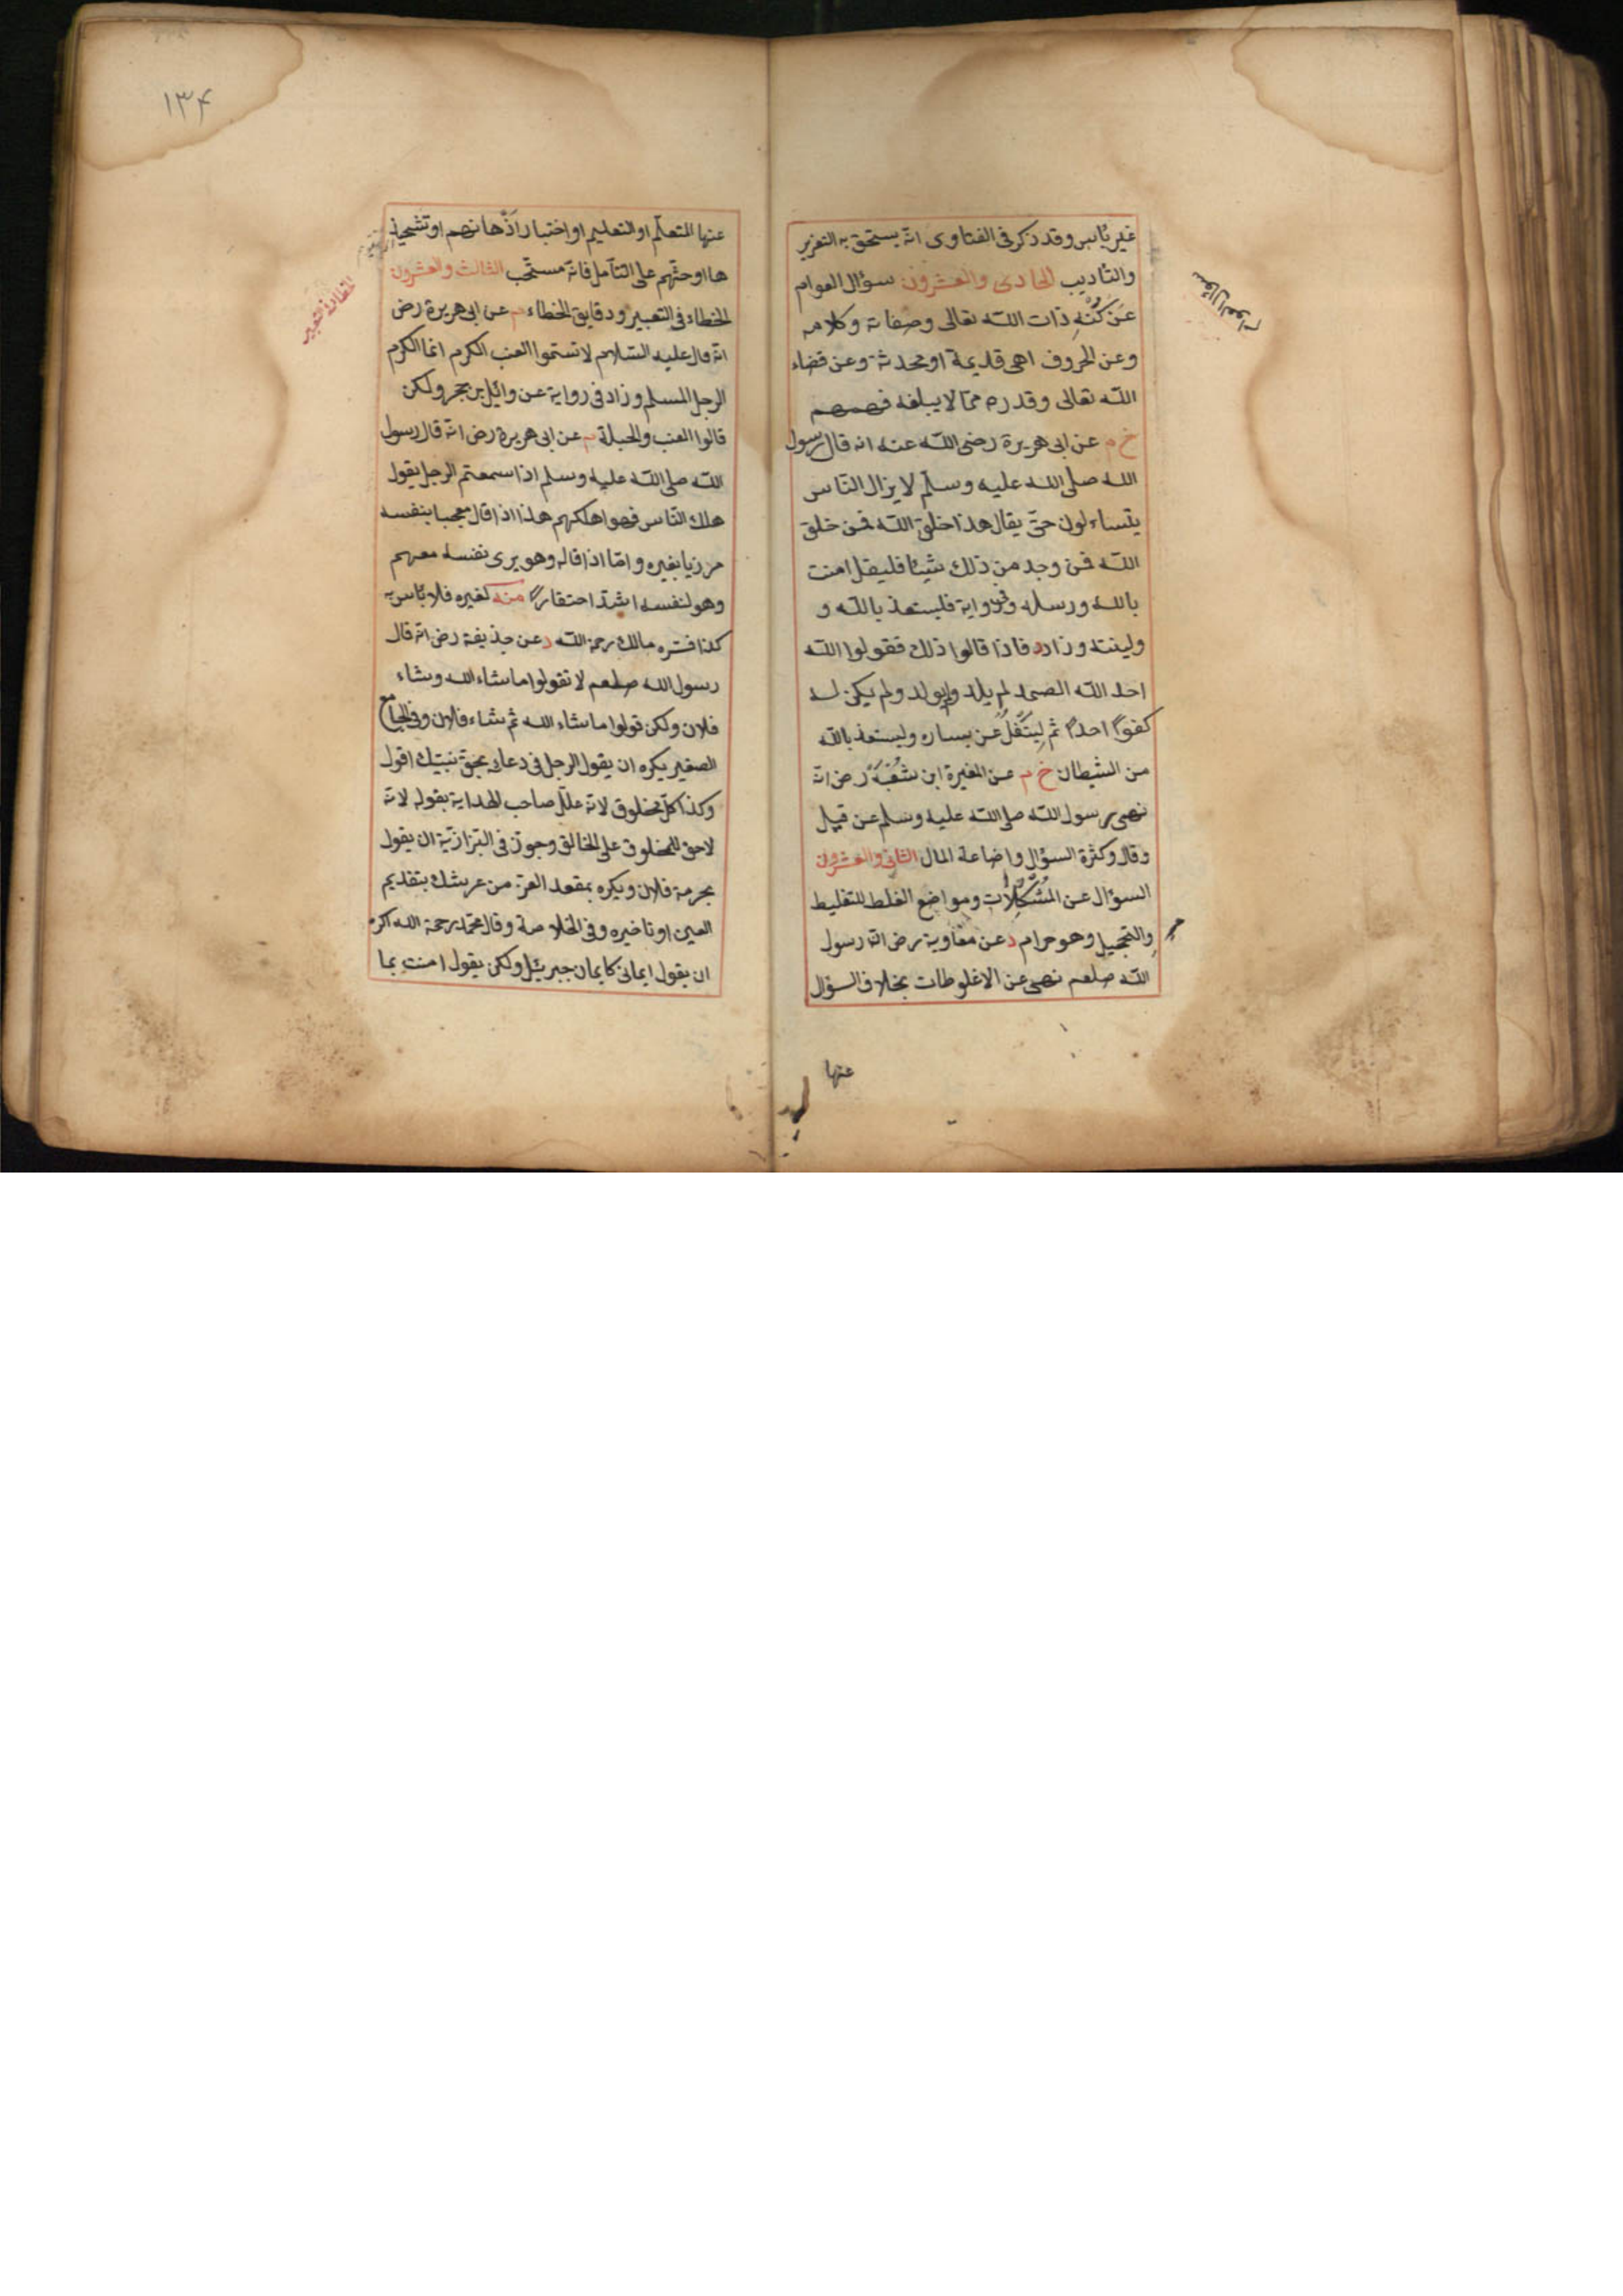 غير بأس وقد ذكر فى الفتاوى انه يستحق به التعزير
والتأديب الحادى والعشرون سؤال العوام
عن كُنْهِ ذات الله تعالى وصفاته وكلامه
وعن الحروف اهى قديمة او محدثة وعن قضاء
الله تعالى وقدره مما لا يبلغه فهمهم
خ م عن ابى هريرة رضى الله عنه انه قال رسول
الله صلى الله عليه وسلم لا يزال الناس
يتساءلون حتى يقال هذا خلق الله فمن خلق
الله فمن وجد من ذلك شيئا فليقل امنت
بالله ورسله وفى رواية فليستعذ بالله و
ولينته وزاد د فاذا قالوا ذلك فقولوا الله
احد الله الصمد لم يلد ولم يولد ولم يكن له
كفوًا احدٌ ثم ليتفل عن يساره وليستعذ بالله
من الشيطان خ م عن المغيرة ابن شُعْبَة رض انه
نهى رسول الله صلى الله عليه وسلم عن قيل
وقال وكثرة السؤال واضاعة المال الثانى والعشرون
السؤال عن المُشْكِلات ومواضع الغلط للتغليط
والتجهيل وهو حرام د عن معاوية رض ان رسول
الله صلعم نهى عن الاغلوطات بخلاف السؤال
عنها
سؤال العوام
١٣٤
عنها للتعلم او التعليم او اختبار اذهانهم او تشحيذ
ها او حثهم على التأمل فانه مستحب الثالث والعشرون
الخطاء فى التعبير ودقايق الخطاء م عن ابى هريرة رض
انه قال عليه السلام لا تسموا العنب الكرم انما الكرم
الرجل المسلم وزاد فى رواية عن وائل بن حجر ولكن
قالوا العنب والحبلة م عن ابى هريرة رض انه قال رسول
الله صلى الله عليه وسلم اذا سمعتم الرجل يقول
هلك الناس فهو اهلكهم هذا اذا قال معجبا بنفسه
مزريا بغيره واما اذا قاله وهو يرى نفسه معهم
وهو لنفسه اشد احتقارًا منه لغيره فلا بأس به
كذا فسره مالك رحمه الله د عن حذيفة رض انه قال
رسول الله صلعم لا تقولوا ما شاء الله وشاء
فلان ولكن قولوا ما شاء الله ثم شاء فلان وفى الجامع
الصغير يكره ان يقول الرجل فى دعائه بحق نبيك اقول
وكذا كل مخلوق لانه علل صاحب الهداية بقوله لانه
لا حق للمخلوق على الخالق وجوز فى البزازية ان يقول
بحرمة فلان ويكره بمقعد العز من عرشك بتقديم
العين او تاخيره وفى الخلاصة وقال محمد رحمه الله اكره
ان يقول ايمانى كايمان جبرئيل ولكن يقول امنت بما
الخطاء فى التعبير